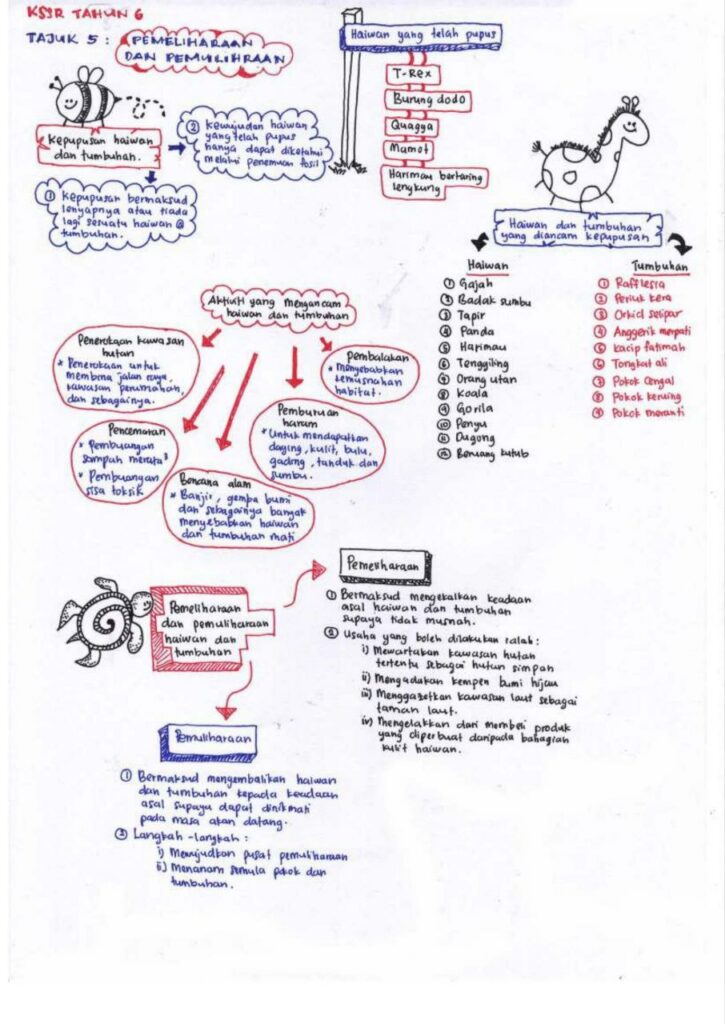 KSSR TAHUN 6
TAJUK 5 : PEMELIHARAAN
DAN PEMULIHRAAN
Kepupusan haiwan
dan tumbuhan.
① Kepupusan bermaksud
lenyapnya atau tiada
lagi sesuatu haiwan @
tumbuhan.
② Kewujudan haiwan
yang telah pupus
hanya dapat diketahui
melalui penemuan fosil
Haiwan yang telah pupus
T-Rex
Burung dodo
Quagga
Mamot
Harimau bertaring
lengkung
Haiwan dan tumbuhan
yang diancam kepupusan
Haiwan
① Gajah
② Badak sumbu
③ Tapir
④ Panda
⑤ Harimau
⑥ Tenggiling
⑦ Orang utan
⑧ Koala
⑨ Gorila
⑩ Penyu
⑪ Dugong
⑫ Beruang kutub
Tumbuhan
① Rafflesia
② Periuk kera
③ Orkid selipar
④ Anggerik merpati
⑤ Kacip fatimah
⑥ Tongkat ali
⑦ Pokok cengal
⑧ Pokok keruing
⑨ Pokok meranti
Aktiviti yang mengancam
haiwan dan tumbuhan
Penerokaan kawasan
hutan
* Penerokaan untuk
membina jalan raya,
kawasan perumahan,
dan sebagainya.
Pencemaran
* Pembuangan
sampah merata²
* Pembuangan
sisa toksik
Bencana alam
* Banjir, gempa bumi
dan sebagainya banyak
menyebabkan haiwan
dan tumbuhan mati
Pemburuan
haram
* Untuk mendapatkan
daging, kulit, bulu,
gading, tanduk dan
sumbu.
Pembalakan
* Menyebabkan
kemusnahan
habitat.
Pemeliharaan
dan pemuliharaan
haiwan dan
tumbuhan
Pemeliharaan
① Bermaksud mengekalkan keadaan
asal haiwan dan tumbuhan
supaya tidak musnah.
② Usaha yang boleh dilakukan ialah:
i) Mewartakan kawasan hutan
tertentu sebagai hutan simpan
ii) Mengadakan kempen bumi hijau
iii) Menggazetkan kawasan laut sebagai
taman laut.
iv) Mengelakkan dari membeli produk
yang diperbuat daripada bahagian
kulit haiwan.
Pemuliharaan
① Bermaksud mengembalikan haiwan
dan tumbuhan kepada keadaan
asal supaya dapat dinikmati
pada masa akan datang.
② Langkah-langkah :
i) Mewujudkan pusat pemuliharaan
ii) Menanam semula pokok dan
tumbuhan.